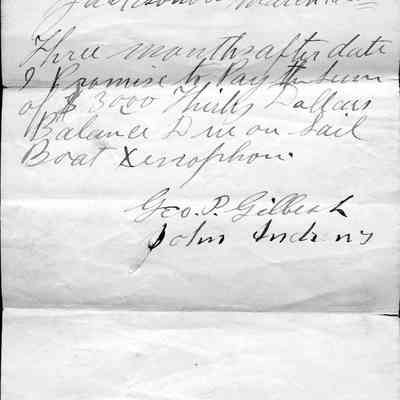 Three months after date
I Promise to Pay the Sum
of $ 30 00 Thirty Dollars
Balance Due on Sail
Boat Xenophon.
Geo. P. Gilbert
John Andrews